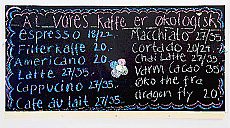 Al vores kaffe er økologisk
Espresso 18/22.-
Filterkaffe 20.
Americano 20
Latte 27/35.
Cappucino 27/35.
Cafe au lait 27/35.
Macchiato 27/35.
Cortado 20/24.-
Chai Latte 27/35.
Varm Cacao 35
Øko the fra
dragon fly 20.